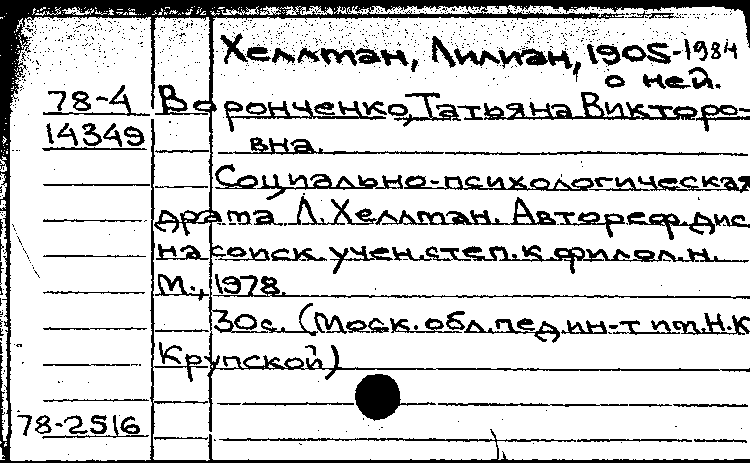 Хеллман, Лилиан, 1905-1984
о ней.
78-4 Воронченко, Татьяна Викторо-
14349 вна.
Социально-психологическая
драма Л. Хеллман. Автореф. дис.
на соиск. учен. степ. к. филол. н.
М., 1978.
30с. (Моск. обл. пед. ин-т им. Н.К.
Крупской)
78-2516